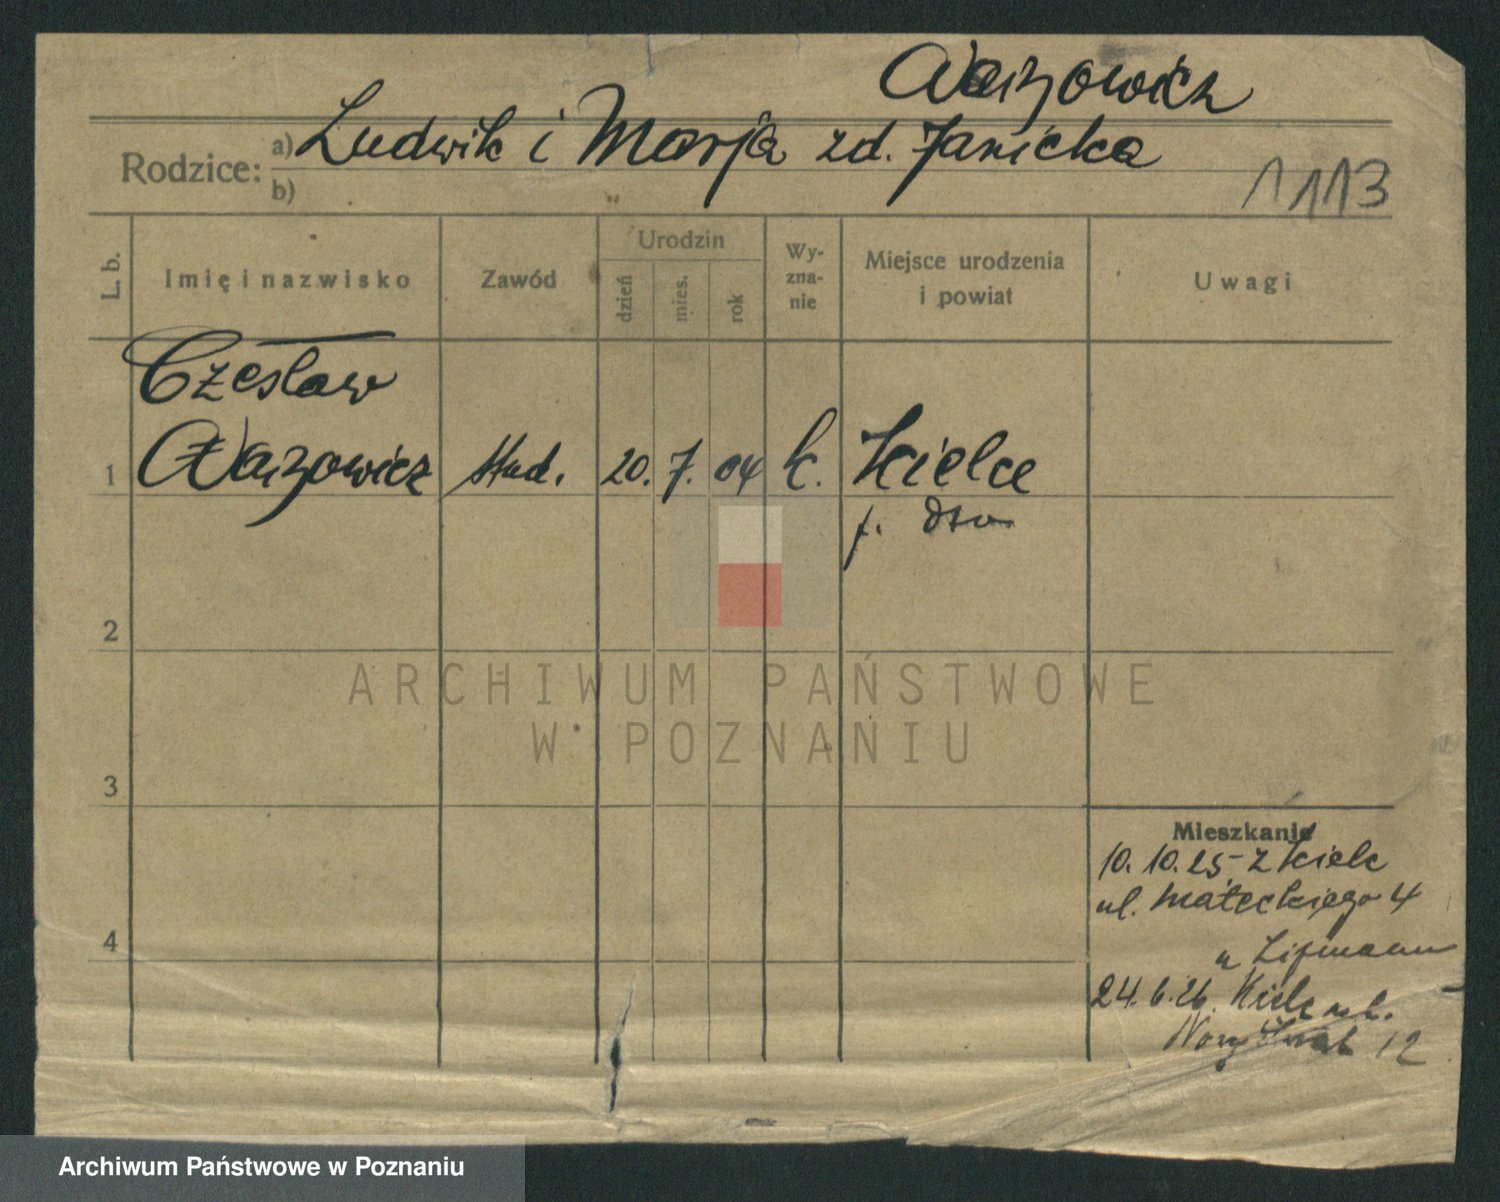 Warzowicz
Rodzice: a) Ludwik i Marja zd. Janicka
b)
1113
L. b.
Imię i nazwisko
Zawód
Urodzin
dzień
mies.
rok
Wy-
zna-
nie
Miejsce urodzenia
i powiat
Uwagi
Czesław
1 Warzowicz stud. 20. 7. 04 k. Kielce
2
ARCHIWUM PAŃSTWOWE
W POZNANIU
3
Mieszkanie
10. 10. 25 z Kielc
ul. Małeckiego 4
u Lipmann
4
24. 6. 26. Kielc ul.
Nowy Świat 12
Archiwum Państwowe w Poznaniu